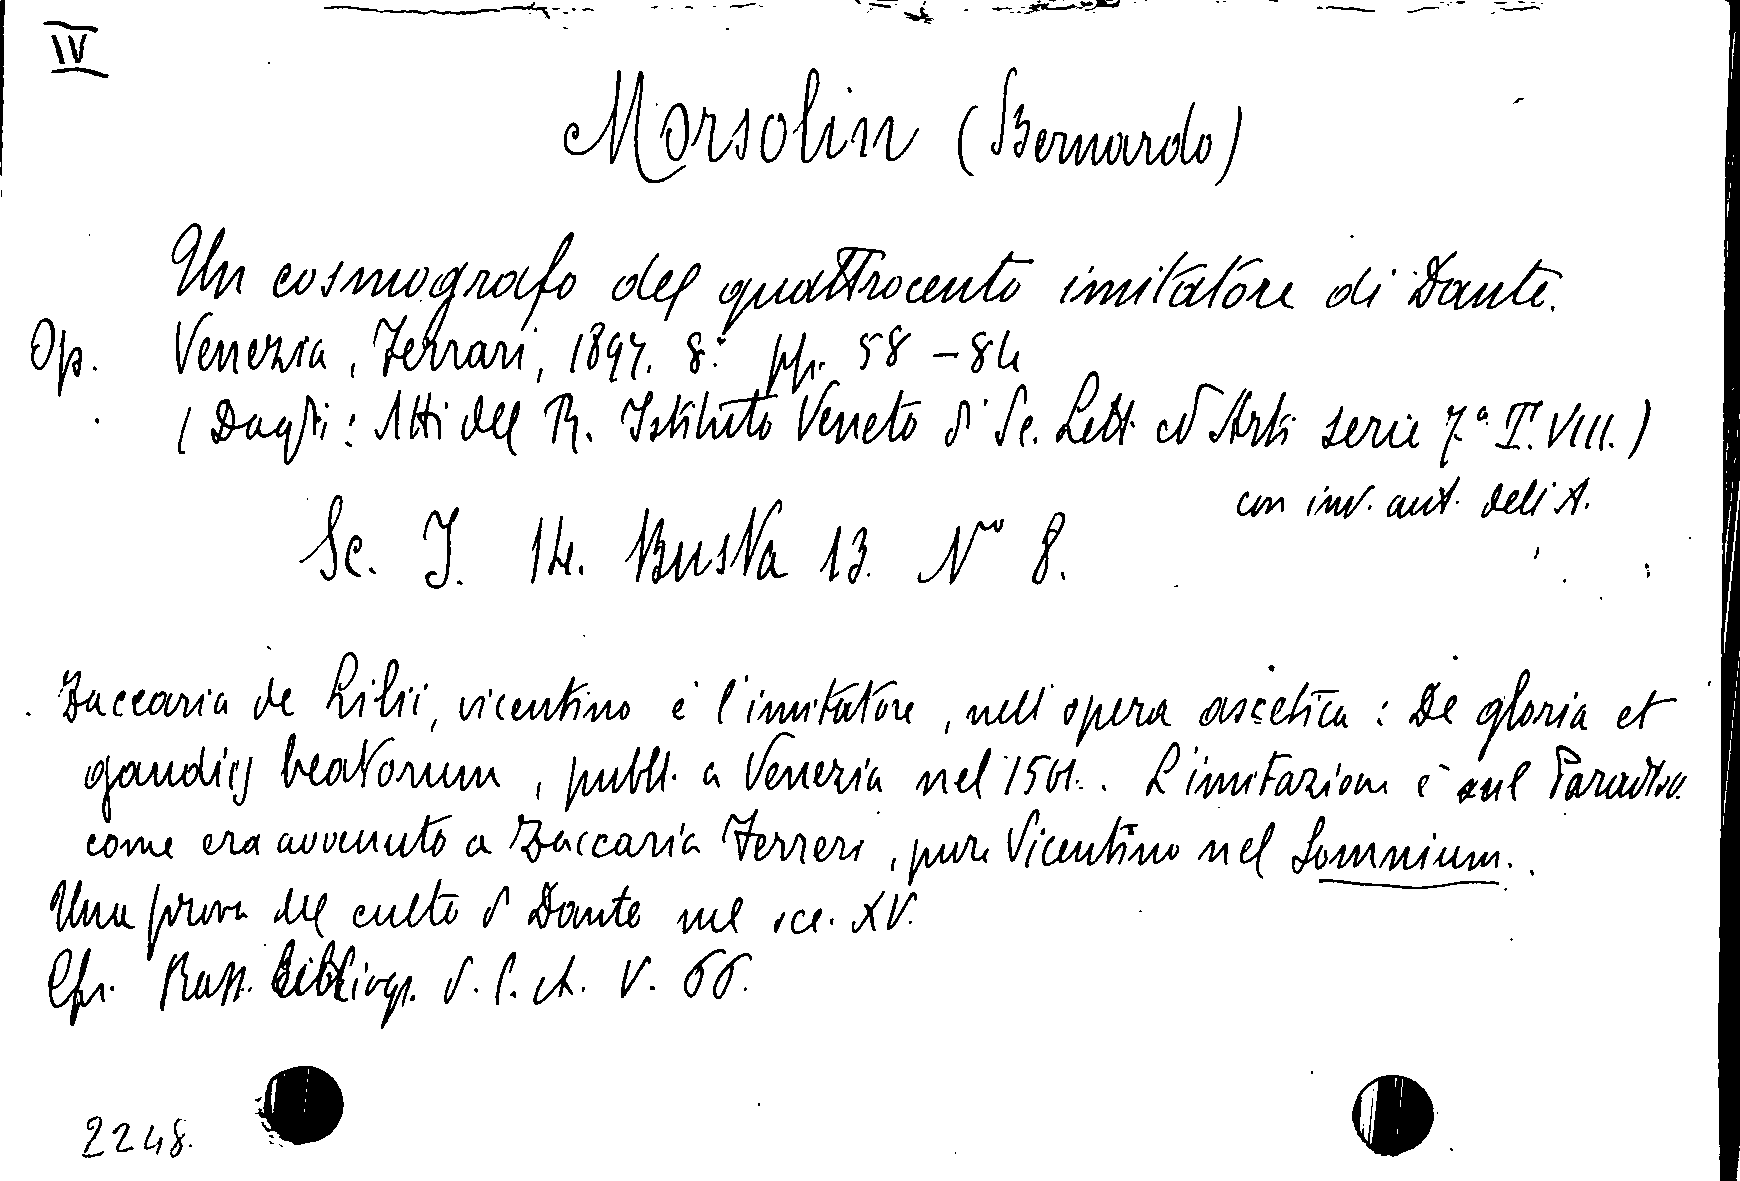 IV
Morsolin (Bernardo)
Un cosmografo del quattrocento imitatore di Dante.
Op. Venezia, Ferrari, 1897. 8.° pp. 58-84
(Dagli: Atti del R. Istituto Veneto di Sc. Lett. ed Arti serie 7.ª T. VIII.)
con inv. aut. dell'A.
Sc. I. 14. Busta 13. N° 8.
Zaccaria de Lilii, vicentino è l'imitatore, nell'opera ascetica: De gloria et
gaudiis beatorum, pubbl. a Venezia nel 1501. L'imitazione è sul Paradiso
come era avvenuto a Zaccaria Ferreri, pure Vicentino nel Somnium.
Una prova del culto di Dante nel sec. XV.
Cfr. Rass. Bibliogr. d. l. it. V. 66.
2248.